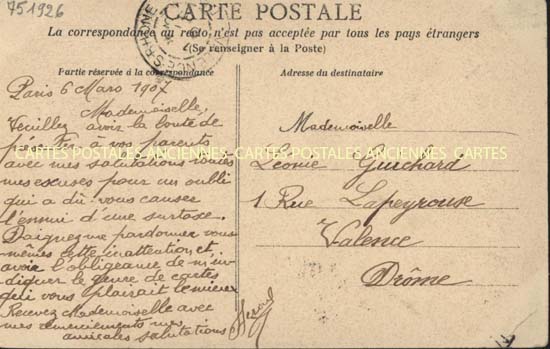 751926
CARTE POSTALE
La correspondance au recto n'est pas acceptée par tous les pays étrangers
(Se renseigner à la Poste)
Partie réservée à la correspondance
Adresse du destinataire
Paris 6 Mars 1907
Mademoiselle,
Veuillez avoir la bonté de
présenter à vos parents
avec mes salutations toutes
mes excuses pour un oubli
qui a dû vous causer
l'ennui d'une surtaxe.
Daignez me pardonner vous
même cette inattention, et
avoir l'obligeance de m'in-
diquer le genre de cartes
qui vous plairait le mieux
Recevez Mademoiselle avec
mes remerciements mes
amicales salutations
CARTES POSTALES ANCIENNES CARTES POSTALES ANCIENNES CARTES
Mademoiselle
Léonie Guichard
1 Rue Lapeyrouse
Valence
Drôme